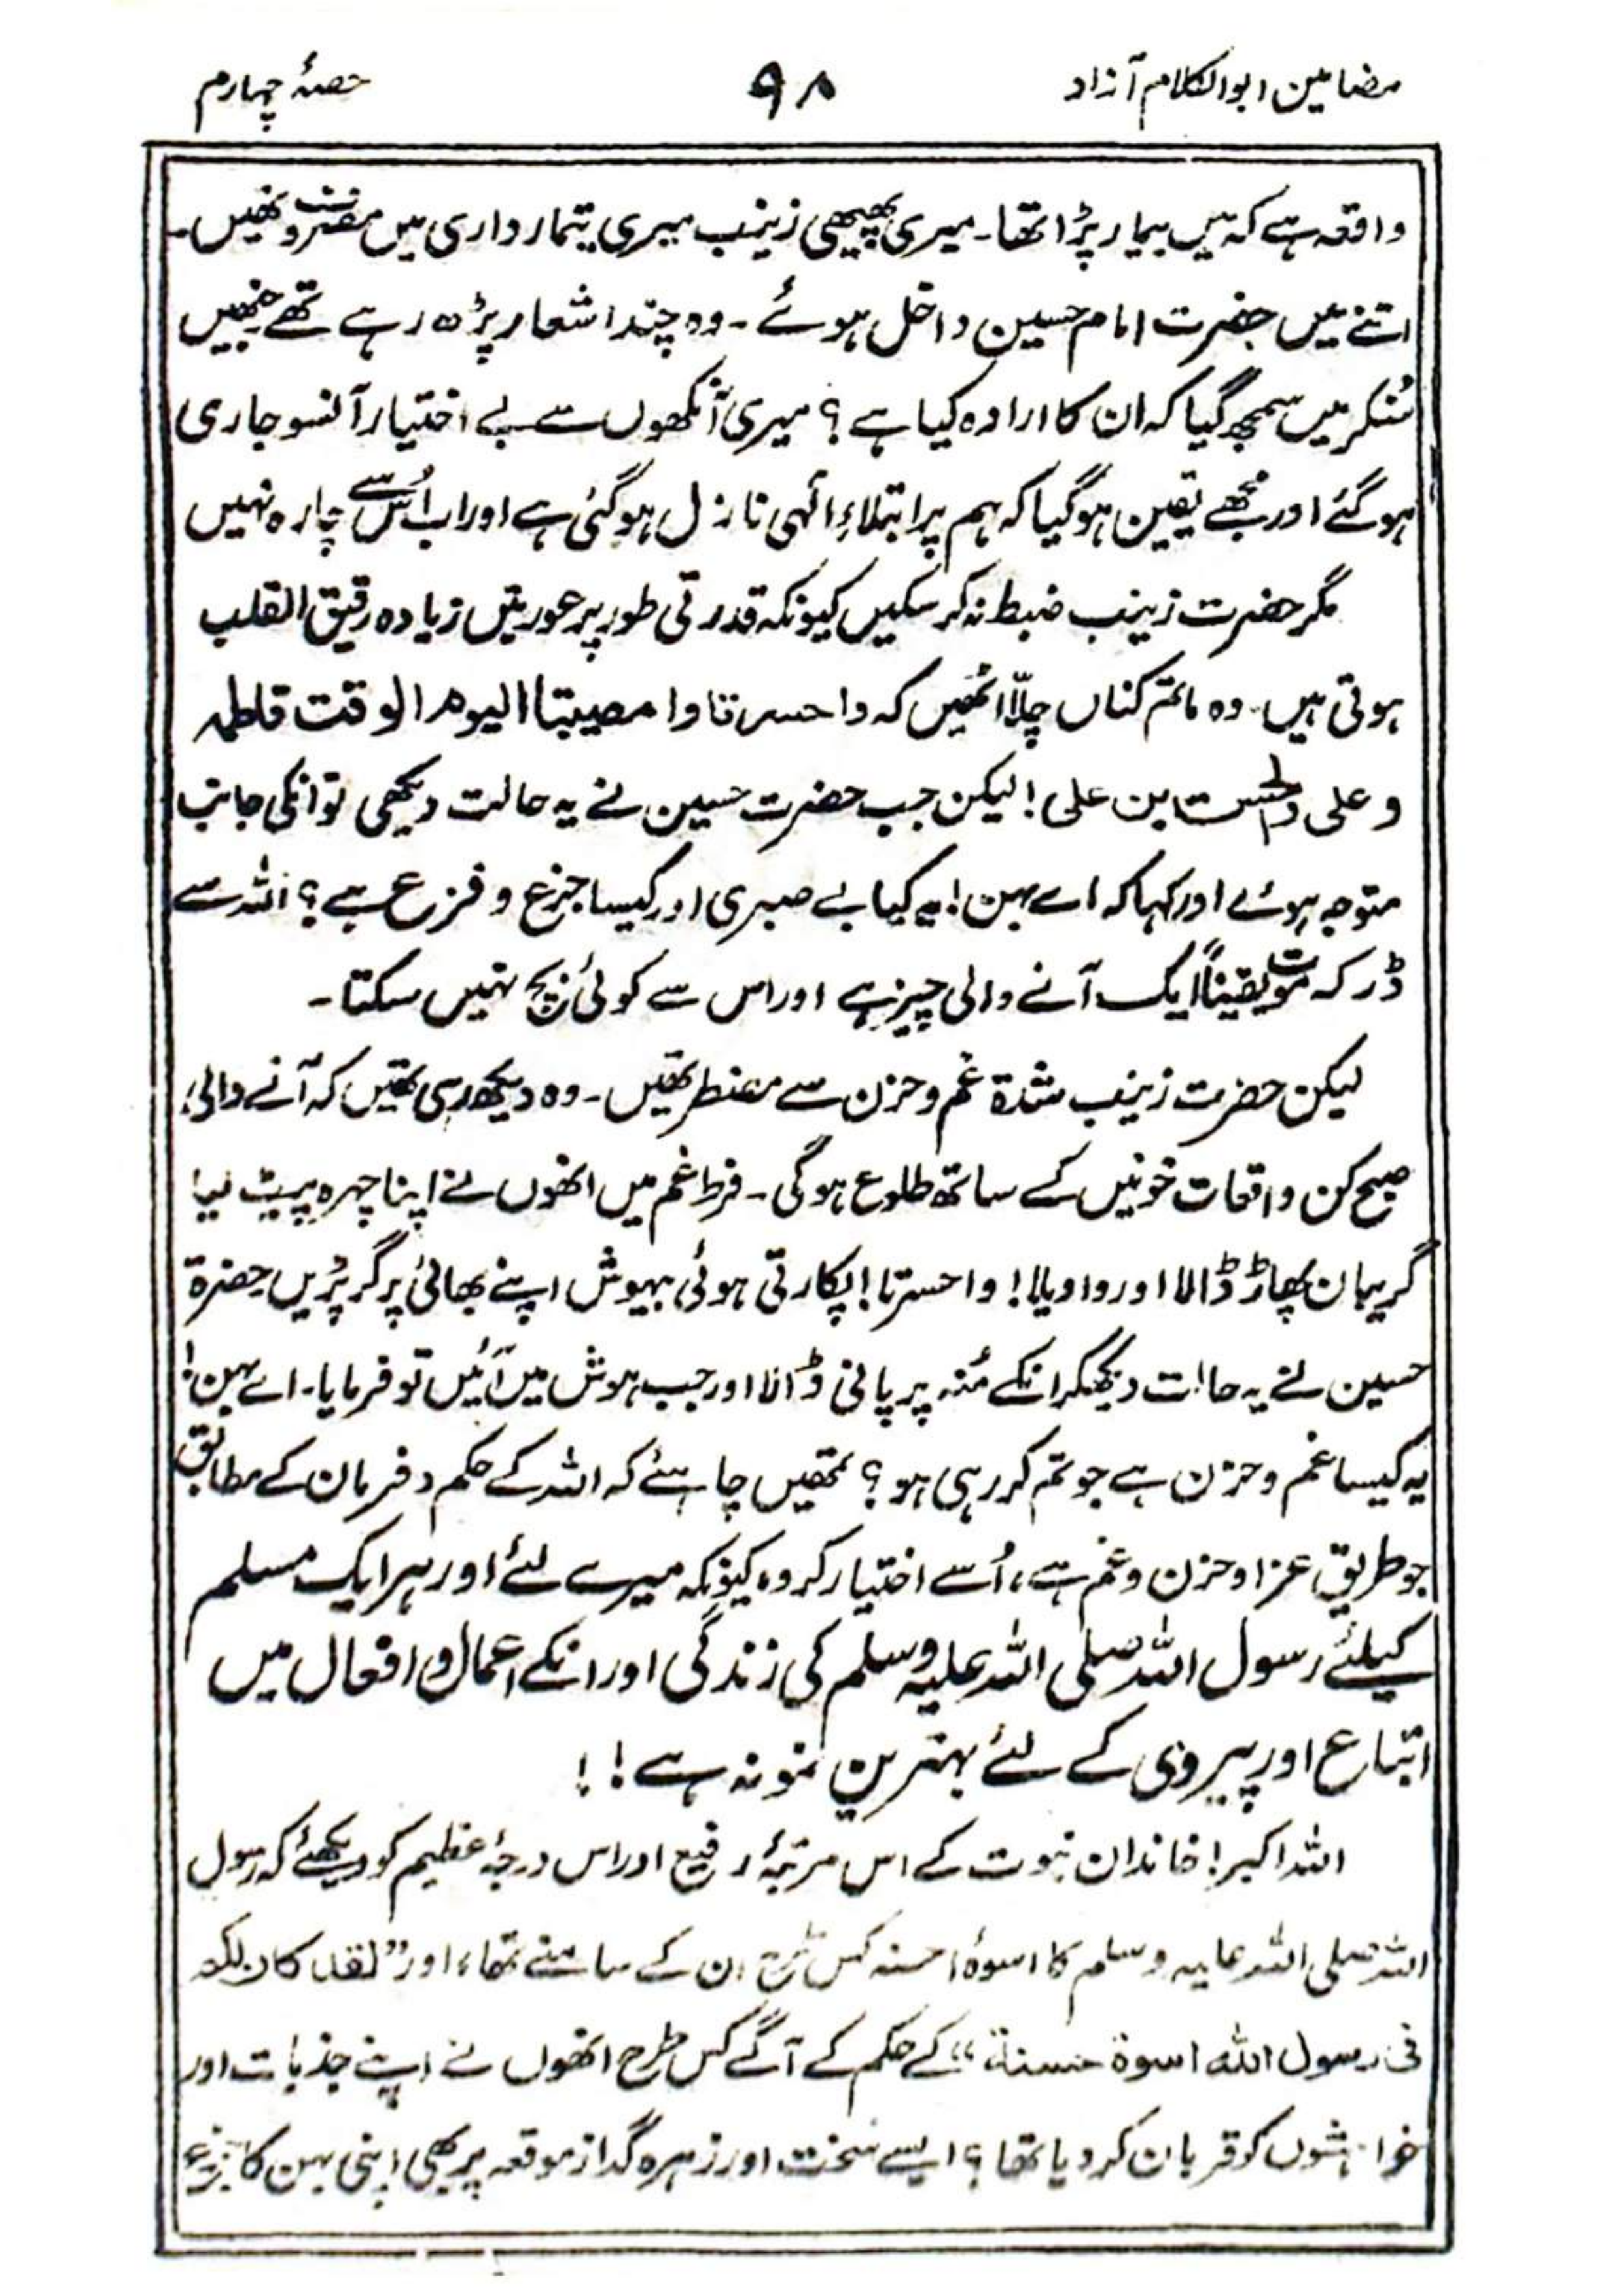 مضامین ابوالکلام آزاد
۹۸
حصۂ چہارم
واقعہ ہے کہ میں بیمار پڑا تھا۔ میری پھپھی زینب میری تیمارداری میں مصروف تھیں۔
اتنے میں حضرت امام حسین داخل ہوئے۔ وہ چند اشعار پڑھ رہے تھے جنھیں
سُنکر میں سمجھ گیا کہ ان کا ارادہ کیا ہے؟ میری آنکھوں سے بے اختیار آنسو جاری
ہوگئے اور مجھے یقین ہوگیا کہ ہم پر ابتلاءِ الٰہی نازل ہوگئی ہے اور اب اُس سے چارہ نہیں
مگر حضرت زینب ضبط نہ کرسکیں کیونکہ قدرتی طور پر عورتیں زیادہ رقیق القلب
ہوتی ہیں۔ وہ ماتم کناں چلّا اٹھیں کہ واحسرتا وا مصیبتا الیوم الوقت فاطمہ
و علی والحسن بن علی! لیکن جب حضرت حسین نے یہ حالت دیکھی تو انکی جانب
متوجہ ہوئے اور کہا کہ اے بہن! یہ کیا بے صبری اور کیسا جزع و فزع ہے؟ اللہ سے
ڈر کہ موت یقیناً ایک آنے والی چیز ہے اور اس سے کوئی بچ نہیں سکتا۔
لیکن حضرت زینب شدۃ غم و حزن سے مضطر تھیں۔ وہ دیکھ رہی تھیں کہ آنے والی
صبح کن واقعات خونیں کے ساتھ طلوع ہوگی۔ فرط غم میں انھوں نے اپنا چہرہ پیٹ لیا
گریبان پھاڑ ڈالا اور واویلا! واحسرتا! پکارتی ہوئی بیہوش اپنے بھائی پر گر پڑیں حضرۃ
حسین نے یہ حالت دیکھکر انکے مُنہ پر پانی ڈالا اور جب ہوش میں آئیں تو فرمایا۔ اے بہن!
یہ کیسا غم و حزن ہے جو تم کر رہی ہو؟ تمھیں چاہئے کہ اللہ کے حکم و فرمان کے مطابق
جو طریق عزا و حزن و غم ہے، اُسے اختیار کرو، کیونکہ میرے لئے اور ہر ایک مسلم
کیلئے رسول اللہ صلی اللہ علیہ وسلم کی زندگی اور انکے اعمال و افعال میں
اتباع اور پیروی کے لئے بہترین نمونہ ہے!!
اللہ اکبر! خاندان نبوت کے اس مرتبۂ رفیع اور اس درجۂ عظیم کو دیکھئے کہ رسول
اللہ صلی اللہ علیہ وسلم کا اسوۂ حسنہ کس طرح ان کے سامنے تھا، اور "لقد کان لکم
فی رسول اللہ اسوۃ حسنۃ" کے حکم کے آگے کس طرح انھوں نے اپنے جذبات اور
خواہشوں کو قربان کردیا تھا؟ ایسے سخت اور زہرہ گداز موقعہ پر بھی اپنی بہن کا جزع